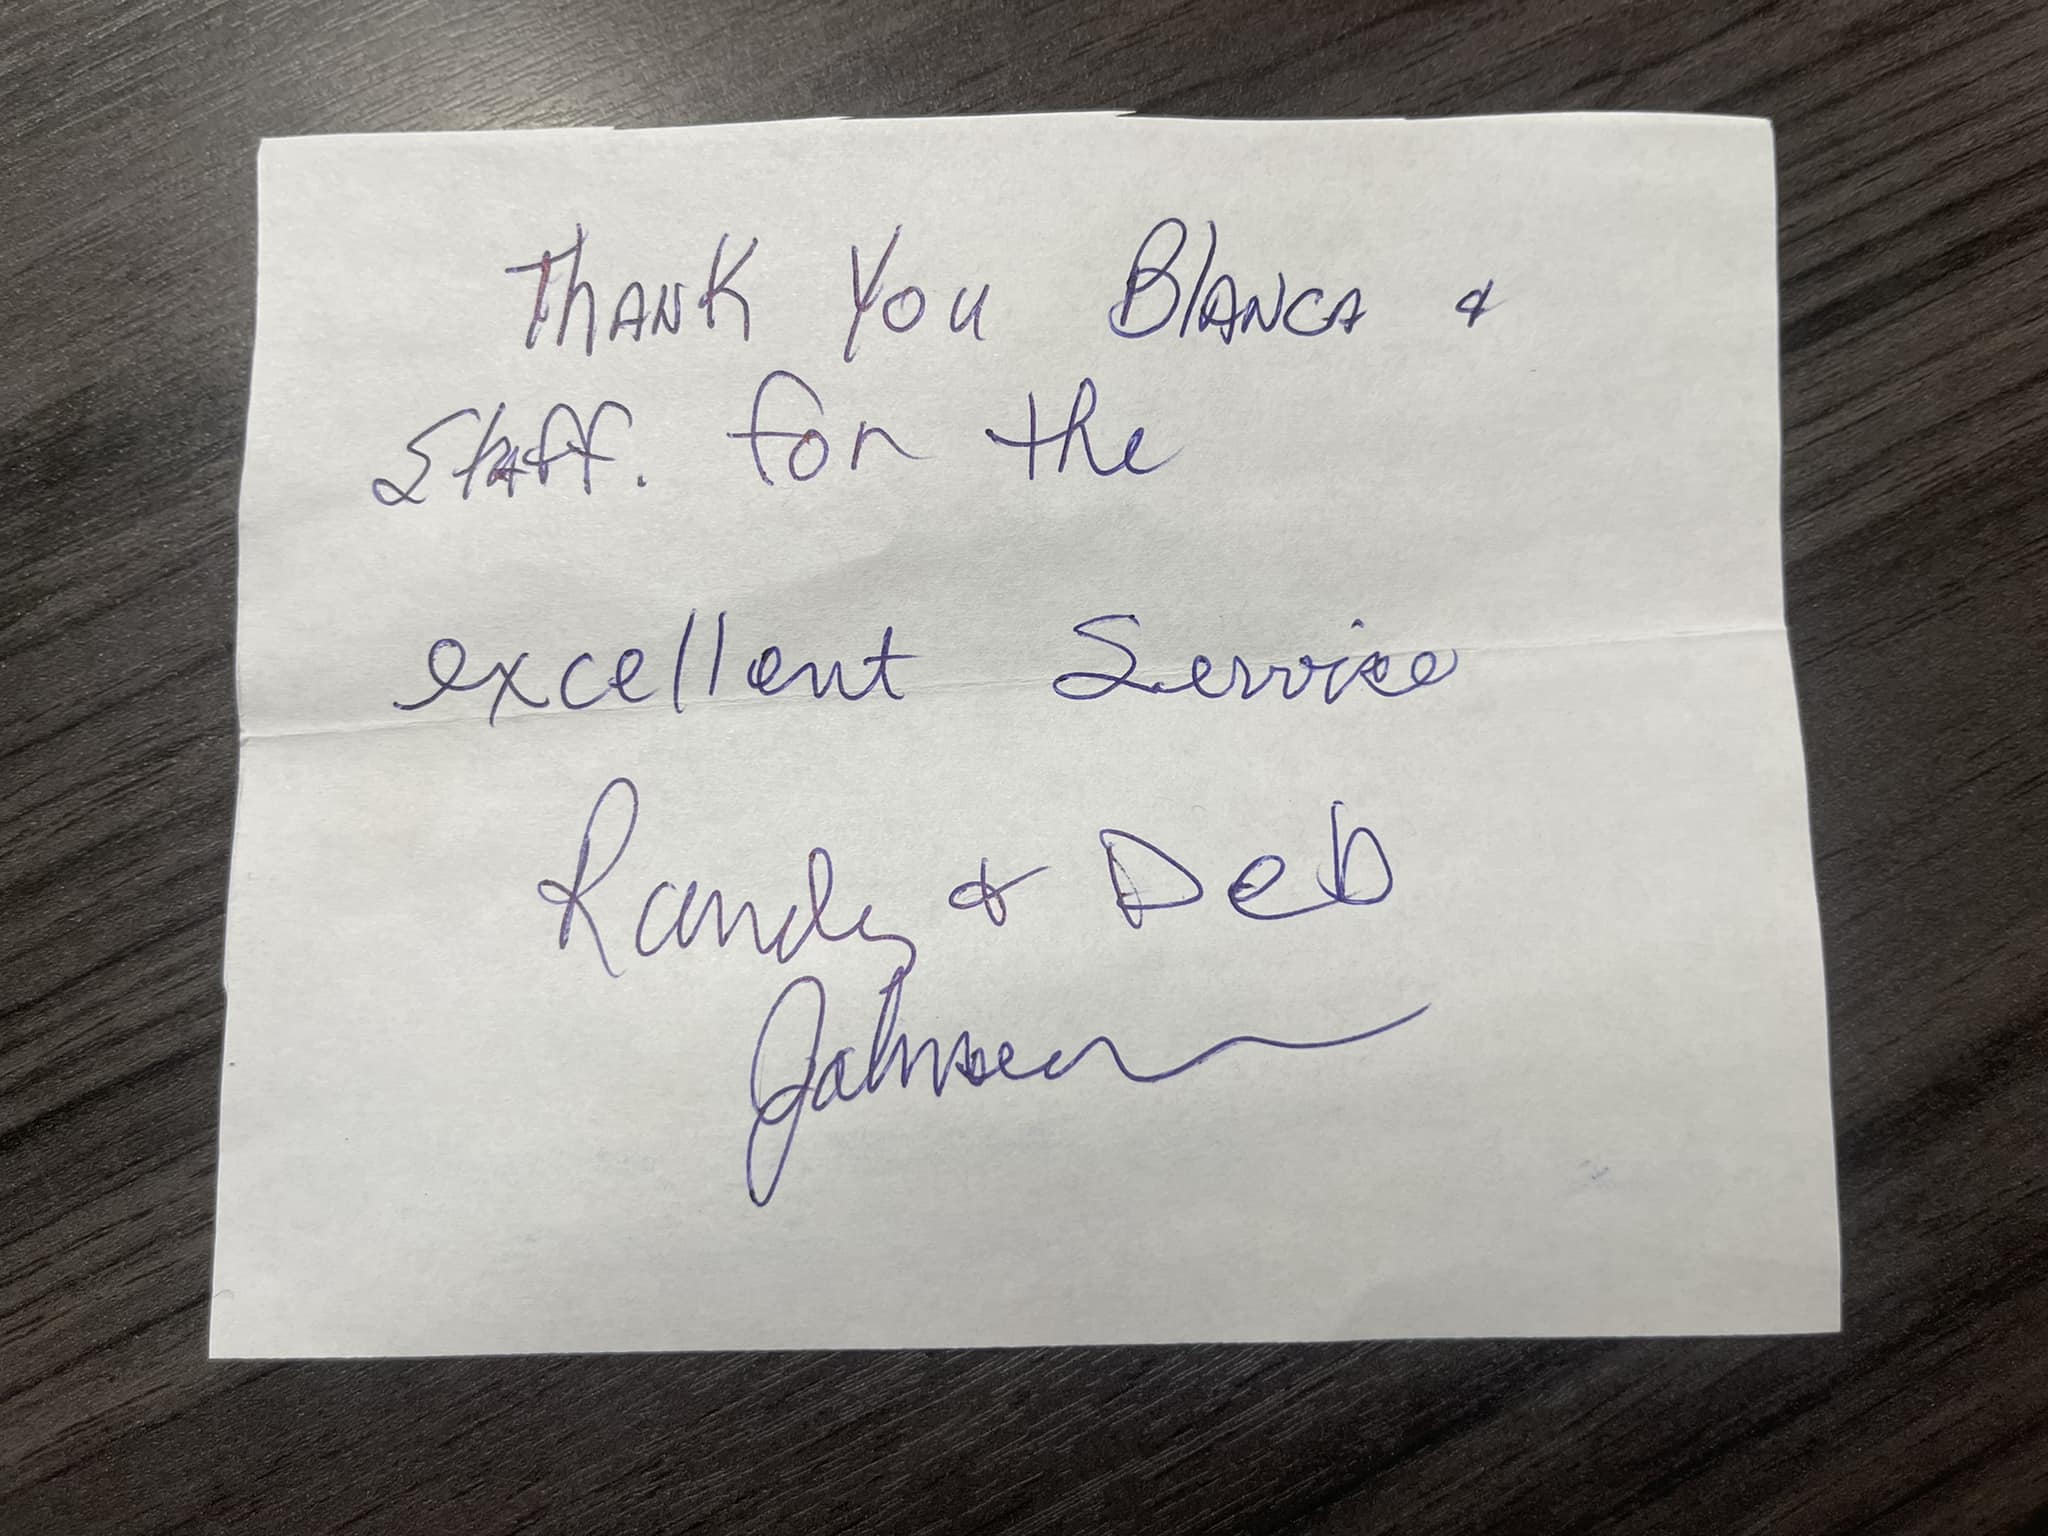 Thank You Blanca &
Staff. for the
excellent Service
Randy & Deb
Johnson